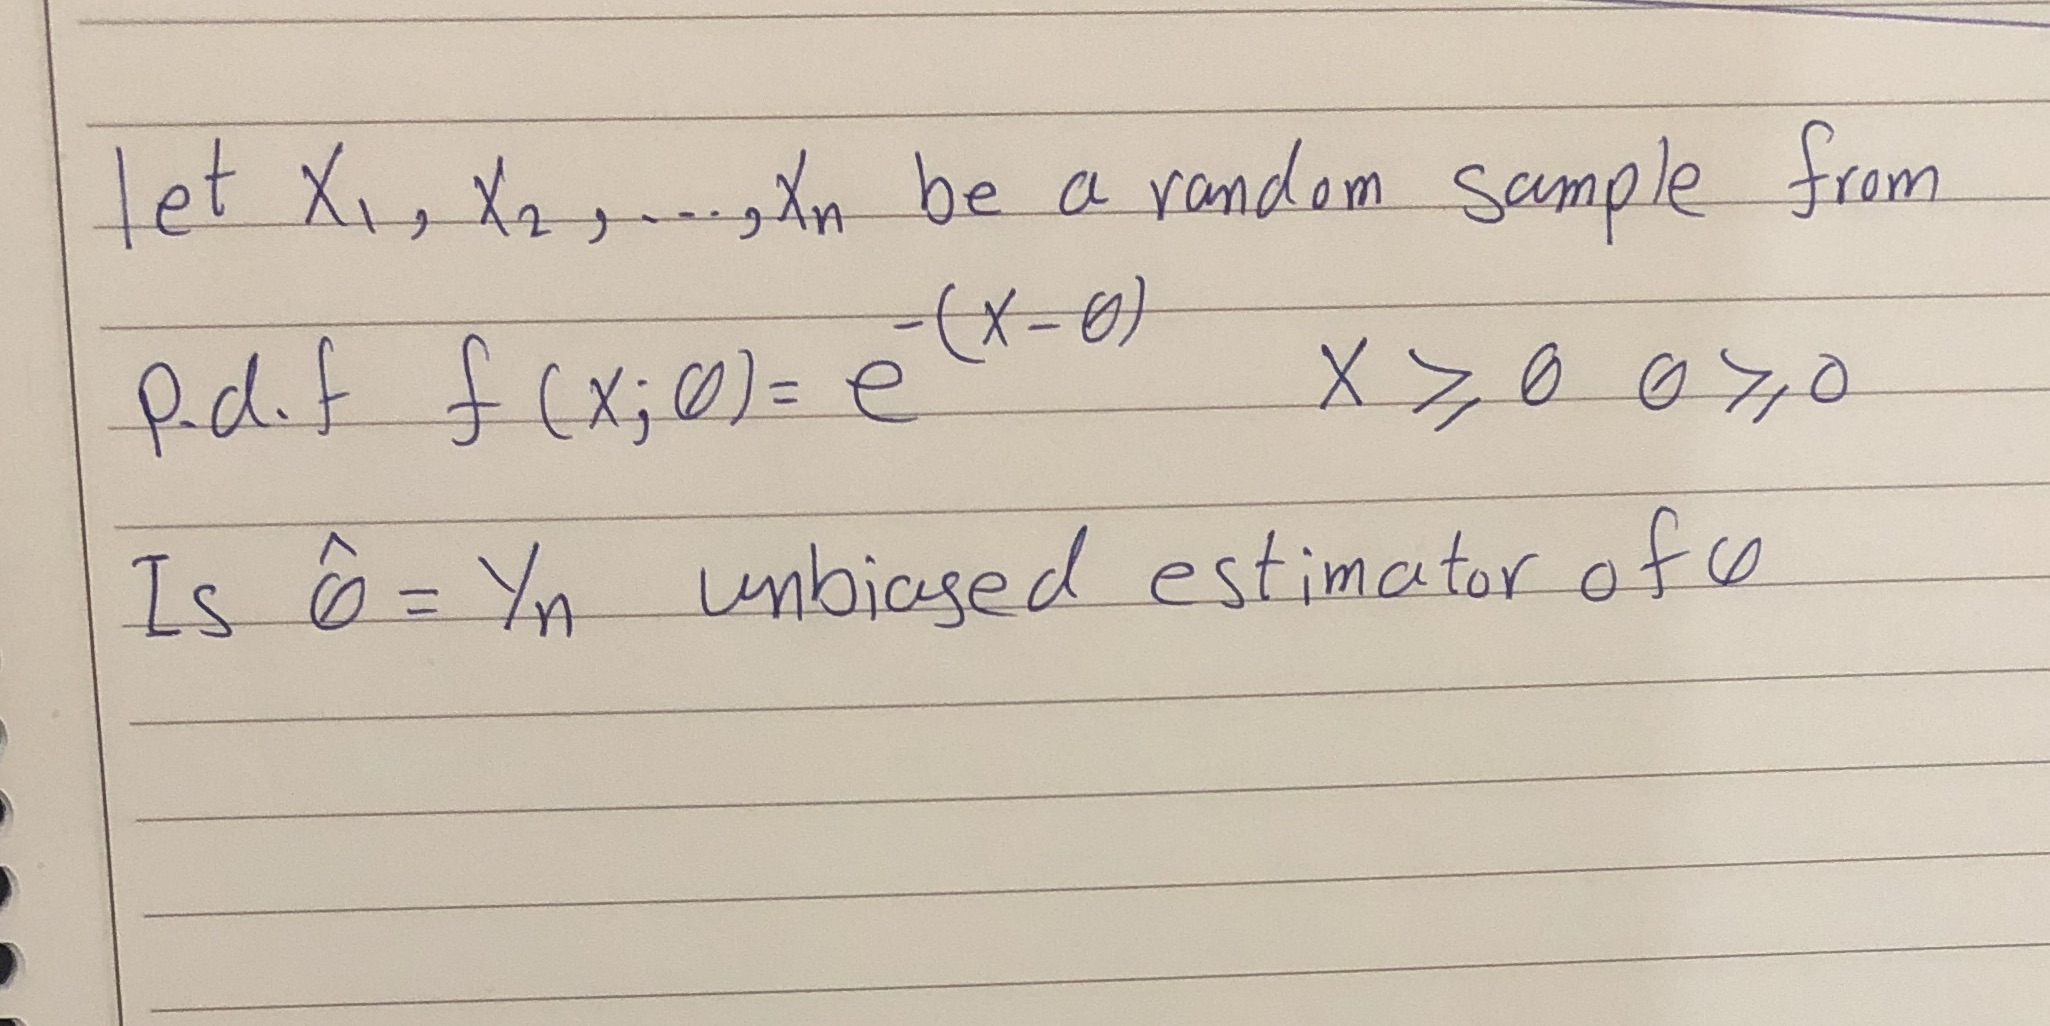 let X₁, X₂, ...., Xn be a random sample from
p.d.f f(x;θ)= e^-(x-θ) X ⩾ θ θ ⩾ 0
Is θ̂ = Yn unbiased estimator of θ